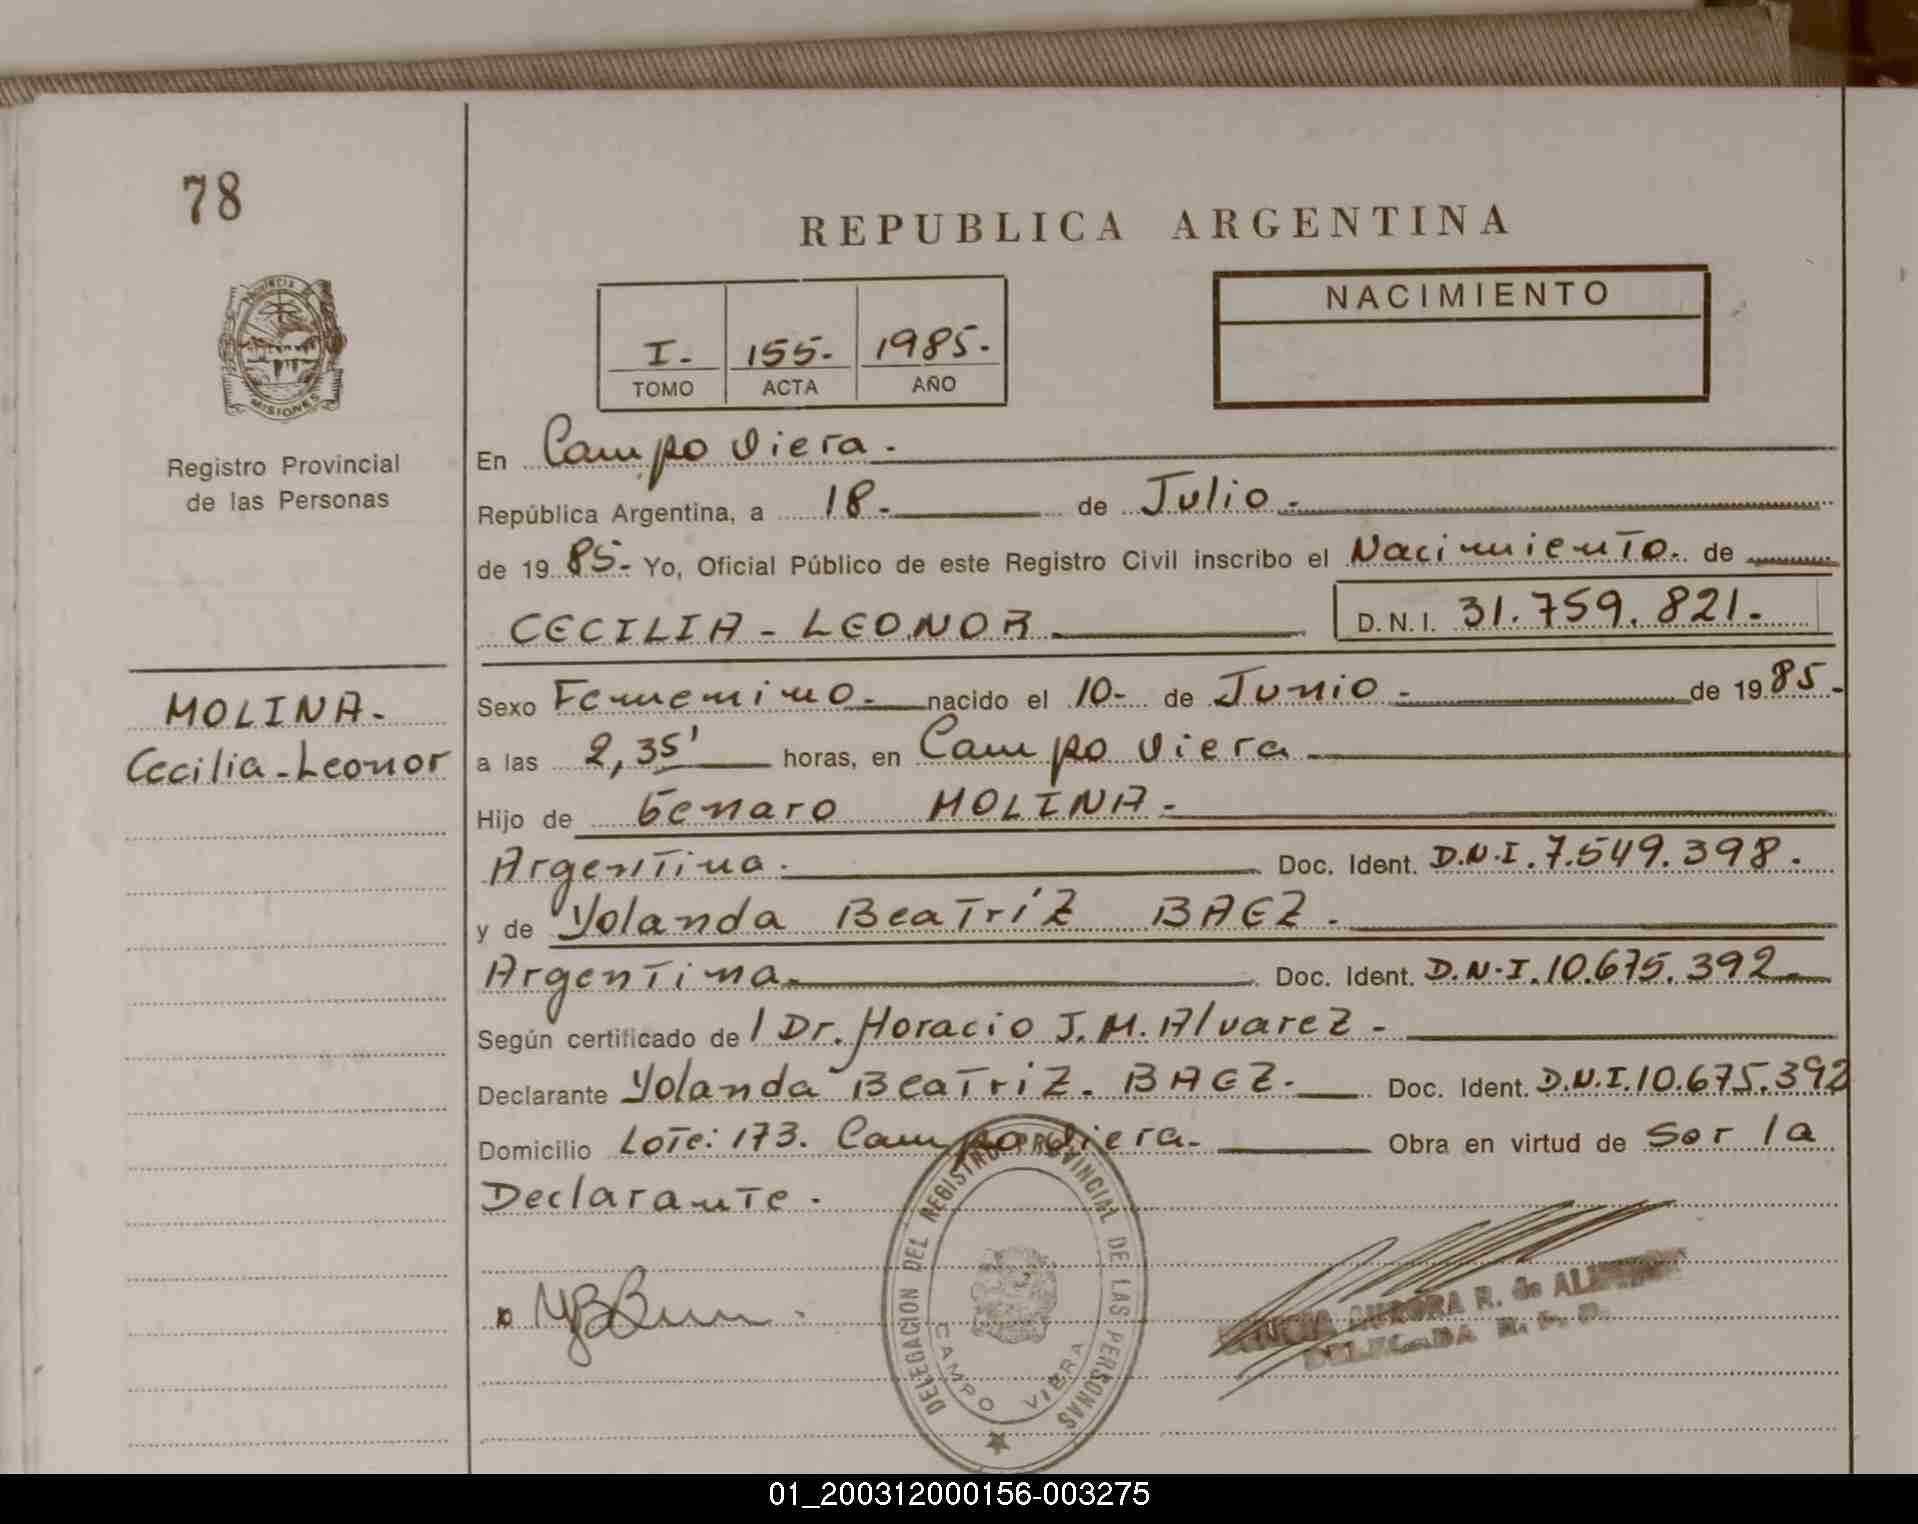 78
REPUBLICA ARGENTINA
NACIMIENTO
I. 155. 1985.
TOMO ACTA AÑO
PROVINCIA DE
MISIONES
Registro Provincial
de las Personas
MOLINA.
Cecilia-Leonor
En Campo Viera.
República Argentina, a 18. de Julio.
de 1985. Yo, Oficial Público de este Registro Civil inscribo el Nacimiento. de
CECILIA - LEONOR D.N.I. 31.759.821.
Sexo Femenino. nacido el 10- de Junio - de 1985.
a las 2,35' horas, en Campo Viera
Hijo de Genaro MOLINA.
Argentina. Doc. Ident. D.N.I. 7.549.398.
y de Yolanda Beatríz BAEZ.
Argentina. Doc. Ident. D.N.I. 10.675.392
Según certificado de l Dr. Horacio J. M. Alvarez -
Declarante Yolanda Beatriz. BAEZ. Doc. Ident. D.N.I. 10.675.392
Domicilio Lote: 173. Campo Viera. Obra en virtud de Ser la
Declarante.
DELEGACION DEL REGISTRO PROVINCIAL DE LAS PERSONAS
CAMPO VIERA
AURORA R. de
DELEGADA
01_200312000156-003275